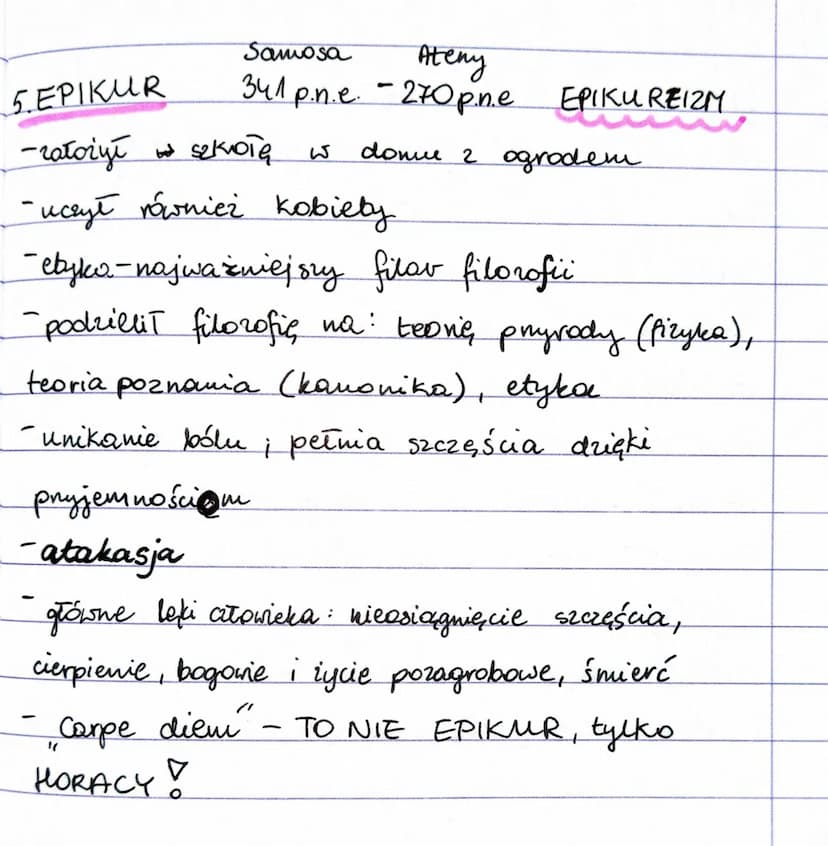 Samosa Ateny
5. EPIKUR 341 p.n.e. - 270 p.n.e EPIKUREIZM
- założył szkołę w domu z ogrodem
- uczył również kobiety
- etyka - najważniejszy filar filozofii
- podzielił filozofię na: teorię przyrody (fizyka),
teoria poznania (kanonika), etyka
- unikanie bólu i pełnia szczęścia dzięki
przyjemnościom
- atakasja
- główne lęki człowieka: nieosiągnięcie szczęścia,
cierpienie, bogowie i życie pozagrobowe, śmierć
- "Carpe diem" - TO NIE EPIKUR, tylko
HORACY!